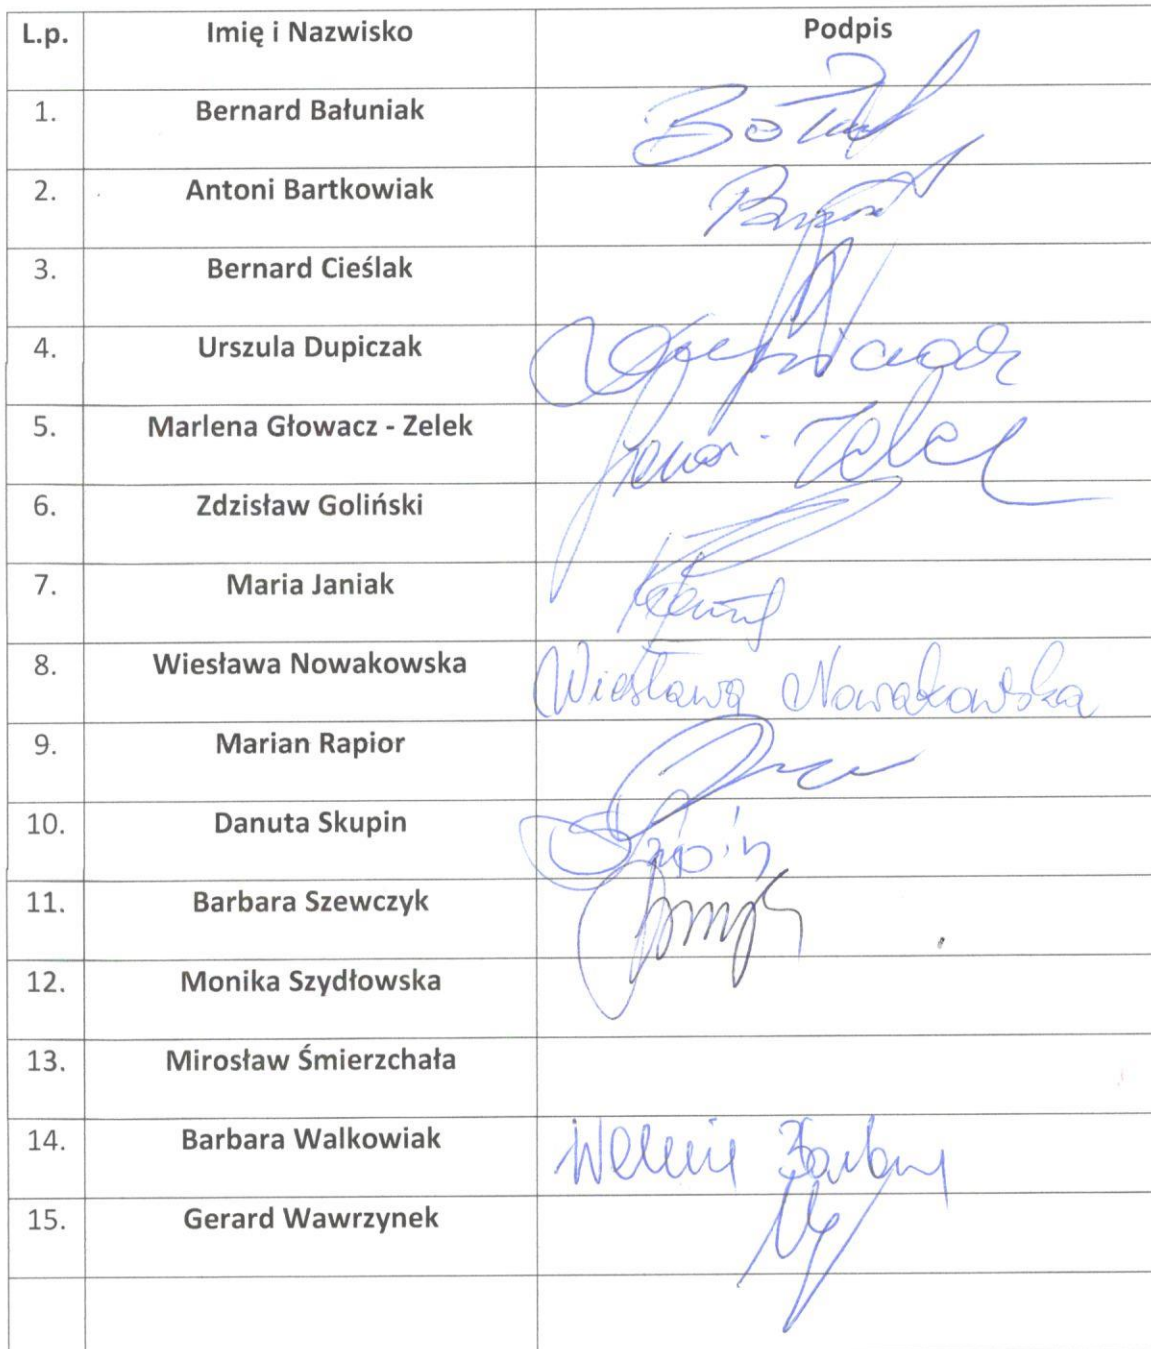 L.p. Imię i Nazwisko Podpis
1. Bernard Bałuniak
2. Antoni Bartkowiak
3. Bernard Cieślak
4. Urszula Dupiczak
5. Marlena Głowacz - Zelek Zelek
6. Zdzisław Goliński
7. Maria Janiak
8. Wiesława Nowakowska Wiesława Nowakowska
9. Marian Rapior
10. Danuta Skupin
11. Barbara Szewczyk
12. Monika Szydłowska
13. Mirosław Śmierzchała
14. Barbara Walkowiak
15. Gerard Wawrzynek